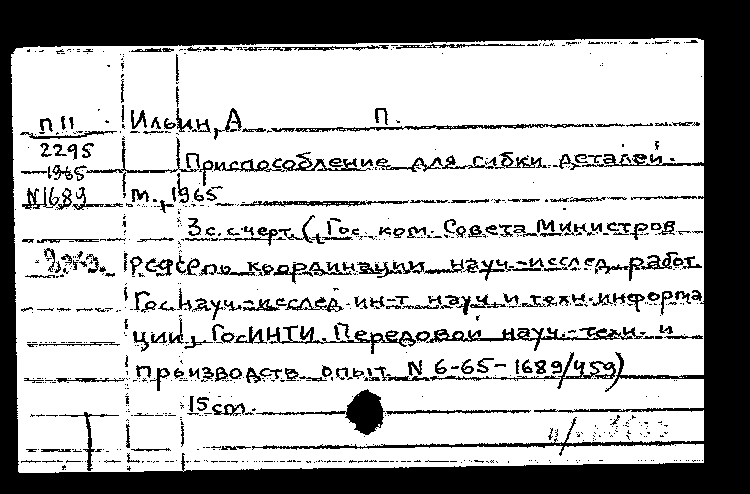 П 11 Ильин, А П.
2295
1965 Приспособление для гибки деталей.
N1689 М., 1965
3 с. с черт. (Гос. ком. Совета Министров
2 экз. РСФСР по координации науч.-исслед. работ
Гос науч.-исслед ин-т науч. и техн. информа
ции, ГосИНТИ. Передовой науч.-техн. и
производств опыт N 6-65-1689/459)
15 cm.